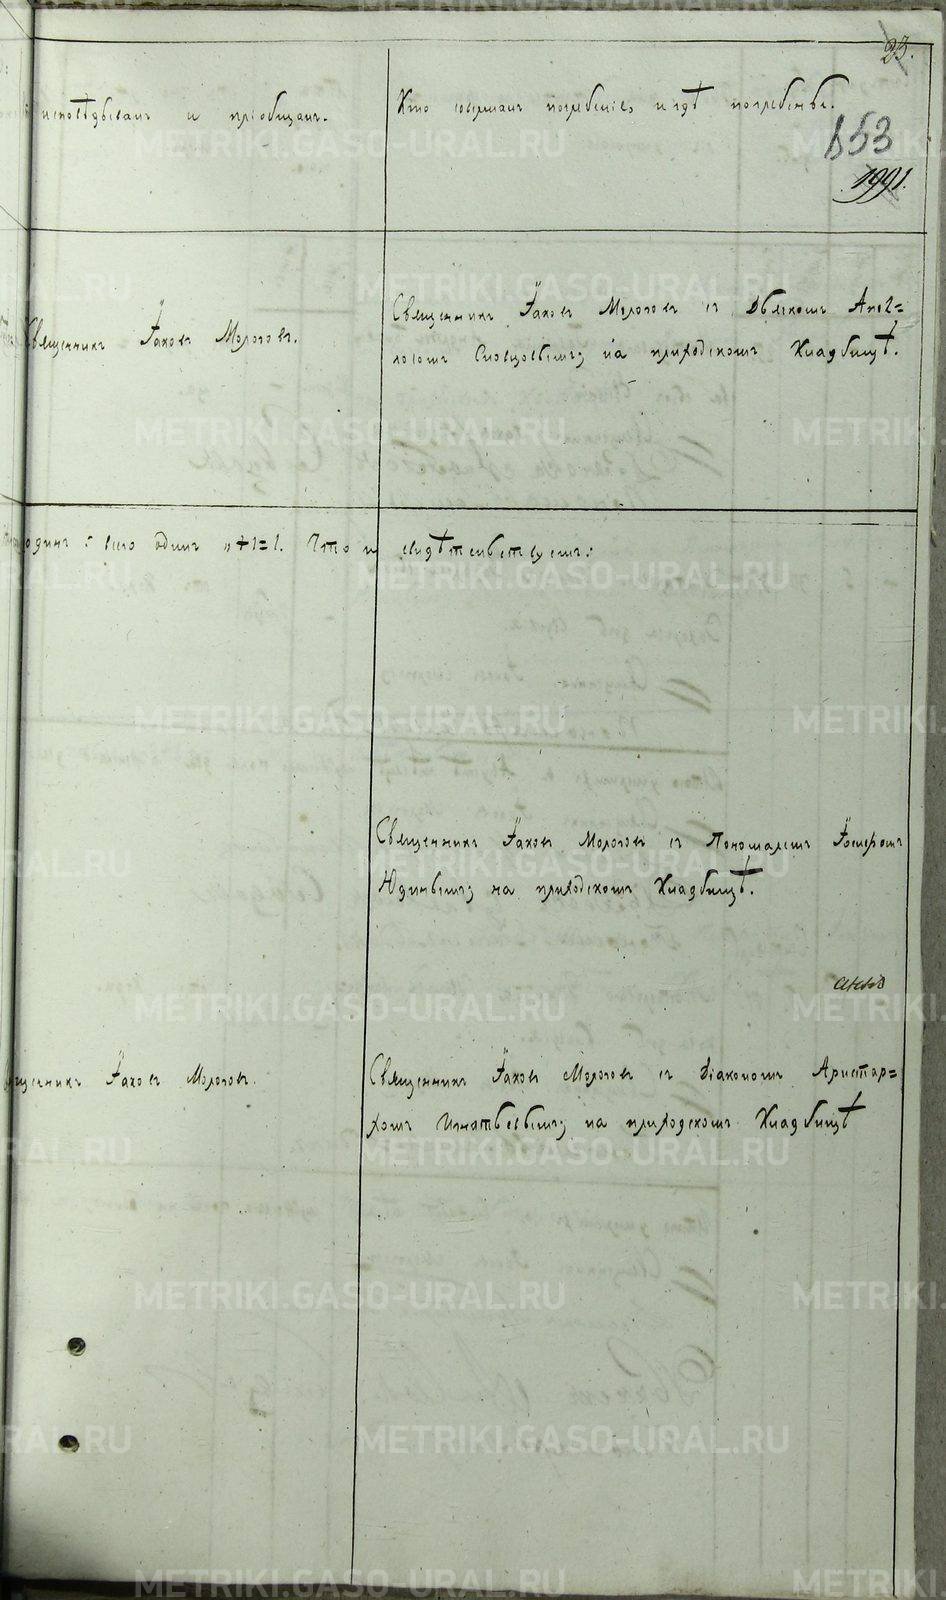 23.
исповѣдывалъ и пріобщалъ.
Кто совершалъ погребеніе, и гдѣ погребены.
853
1991.
Священникъ Іаковъ Мологовъ.
Священникъ Іаковъ Мологовъ съ Дьякомъ
Словцовымъ, на приходскомъ Кладбищѣ.
одинъ: всего одинъ "+1=1. Что и свидѣтельствуемъ:
Священникъ Іаковъ Мологовъ съ Пономаремъ Іосифомъ
Юдинымъ, на приходскомъ Кладбищѣ.
щенникъ Іаковъ Мологовъ.
Священникъ Іаковъ Мологовъ съ Діакономъ Аристар=
хомъ Игнатьевымъ, на приходскомъ Кладбищѣ
METRIKI.GASO-URAL.RU